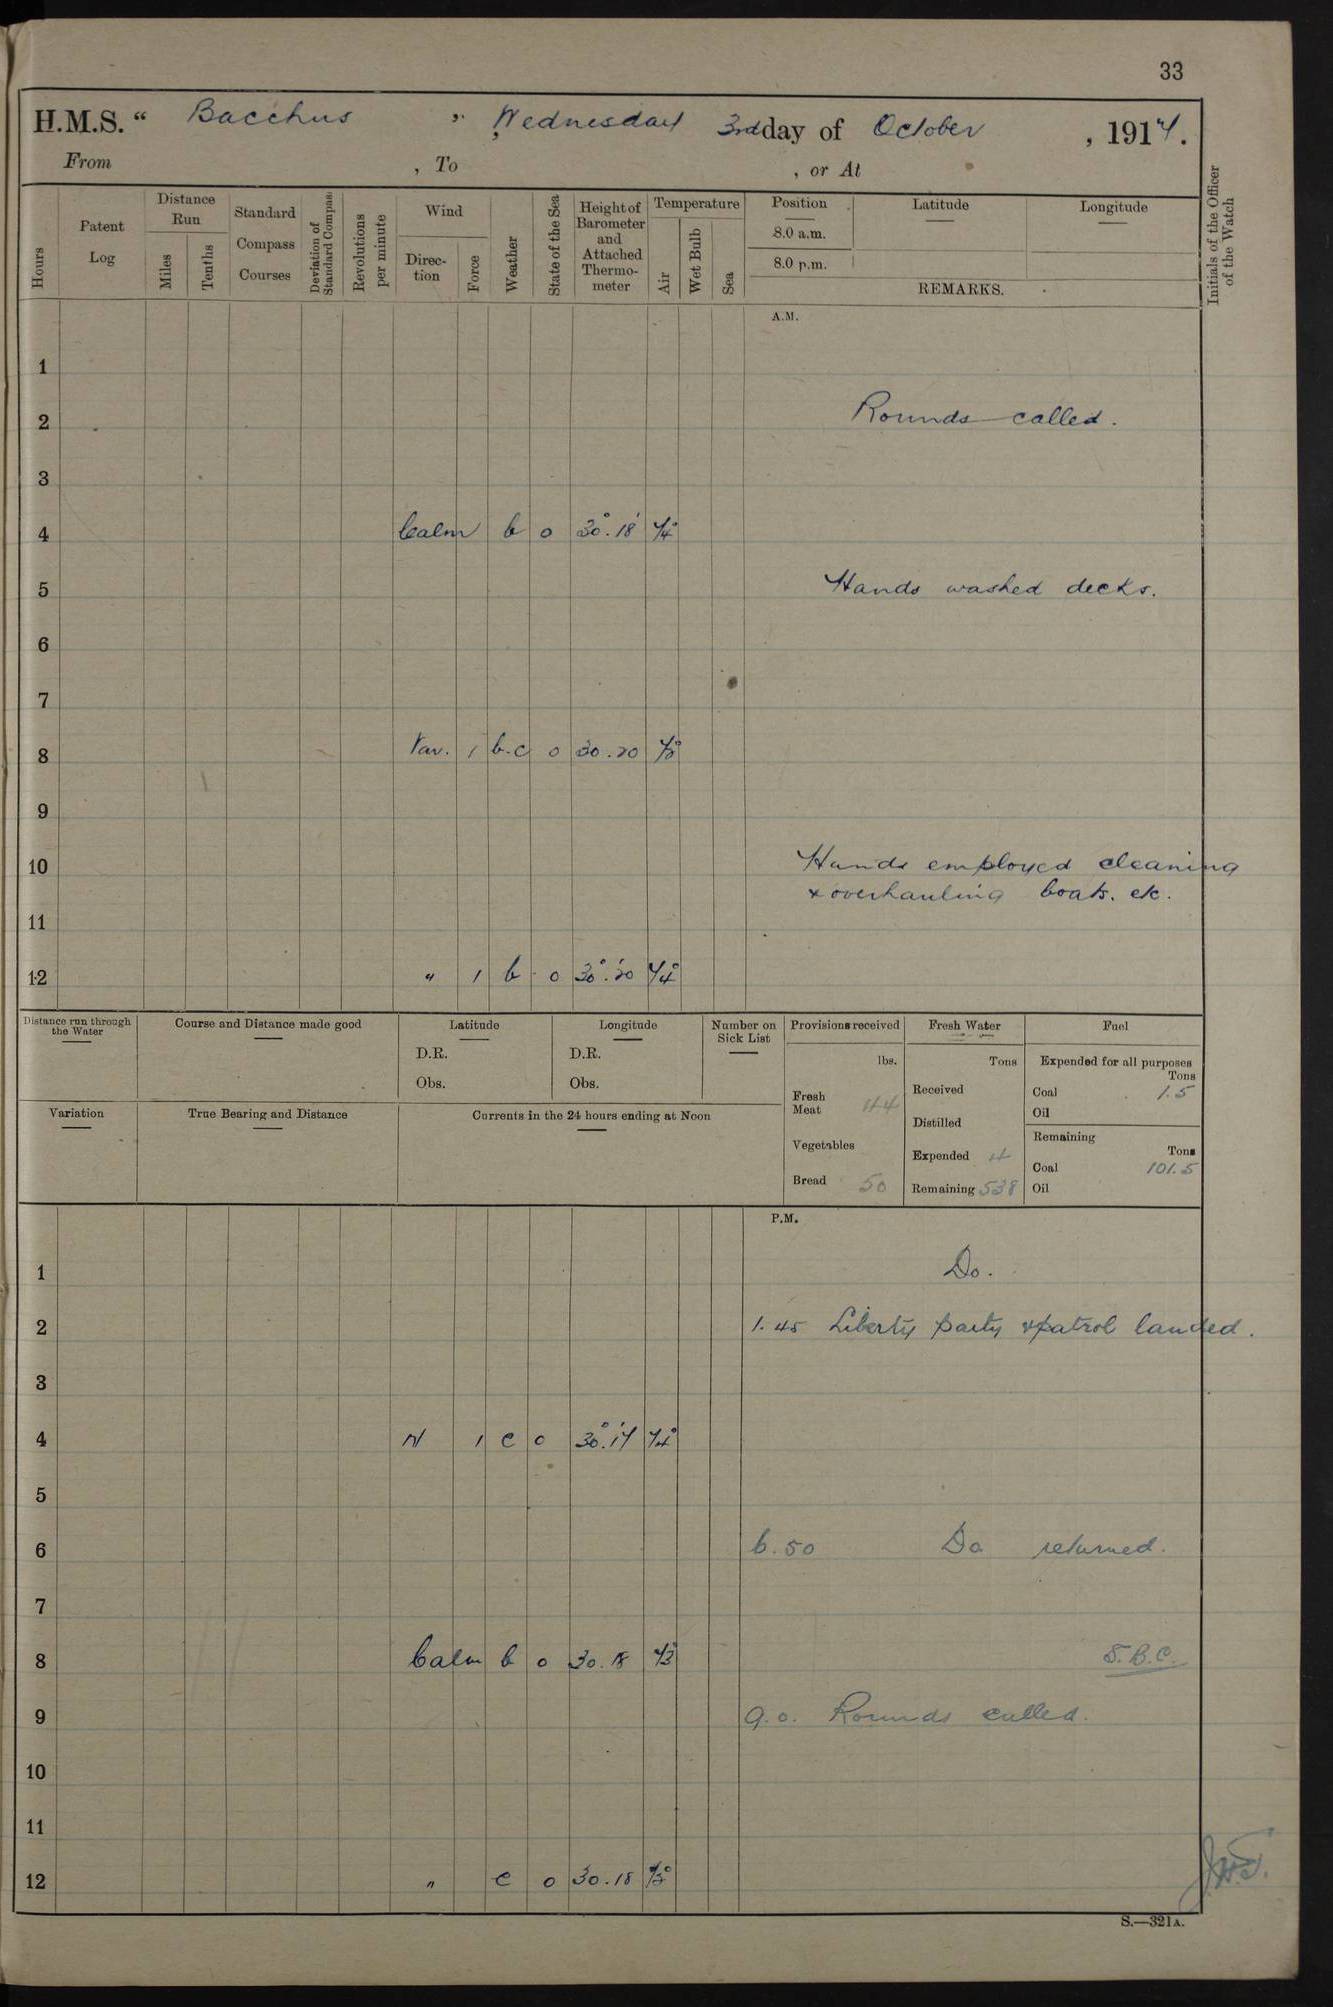 33
H.M.S. “ Bacchus ” , Wednesday 3rd day of October , 1917.
From , To , or At
Hours
Patent Log
Distance Run
Miles
Tenths
Standard Compass Courses
Deviation of Standard Compass
Revolutions per minute
Wind
Direction
Force
Weather
State of the Sea
Height of Barometer and Attached Thermometer
Temperature
Air
Wet Bulb
Sea
Position
8.0 a.m.
8.0 p.m.
Latitude
Longitude
REMARKS.
Initials of the Officer of the Watch
A.M.
1
2 Rounds called.
3
4 Calm b 0 30.18 74
5 Hands washed decks.
6
7
8 Var. 1 b.c 0 30.20
9
10 Hands employed cleaning
& overhauling boats. etc.
11
12 " 1 b 0 30.20 74
Distance run through the Water
Course and Distance made good
Latitude
D.R.
Obs.
Longitude
D.R.
Obs.
Number on Sick List
Provisions received
lbs.
Fresh Meat 44
Vegetables
Bread 50
Fresh Water
Tons
Received
Distilled
Expended 4
Remaining 538
Fuel
Expended for all purposes
Tons
Coal 1.5
Oil
Remaining
Tons
Coal 101.5
Oil
Variation
True Bearing and Distance
Currents in the 24 hours ending at Noon
P.M.
1 Do.
2 1.45 Liberty party & patrol landed.
3
4 N 1 c 0 30.17 74
5
6 6.50 Do returned.
7
8 Calm b 0 30.18 73 S.B.C.
9 9.0. Rounds called.
10
11
12 " c 0 30.18
S.—321A.